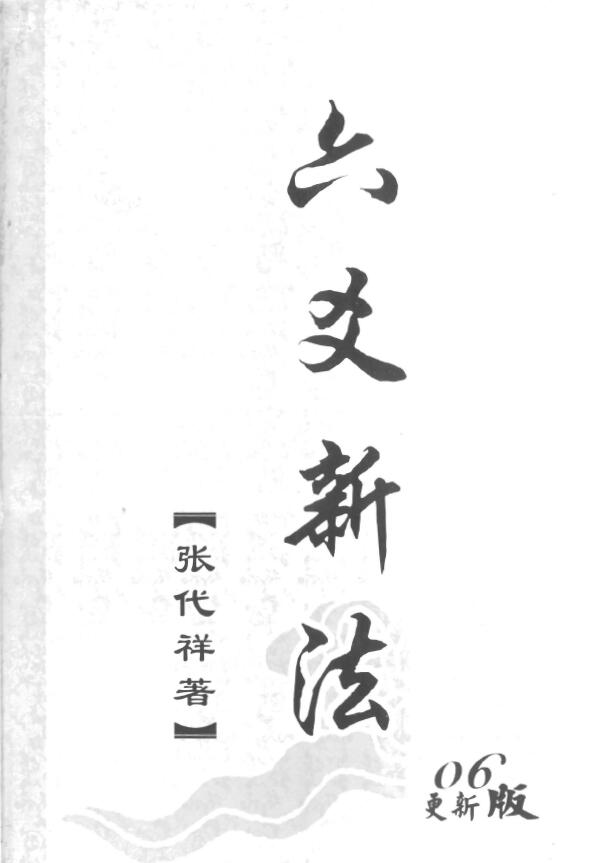 六爻新法
【张代祥著】
06
更新版